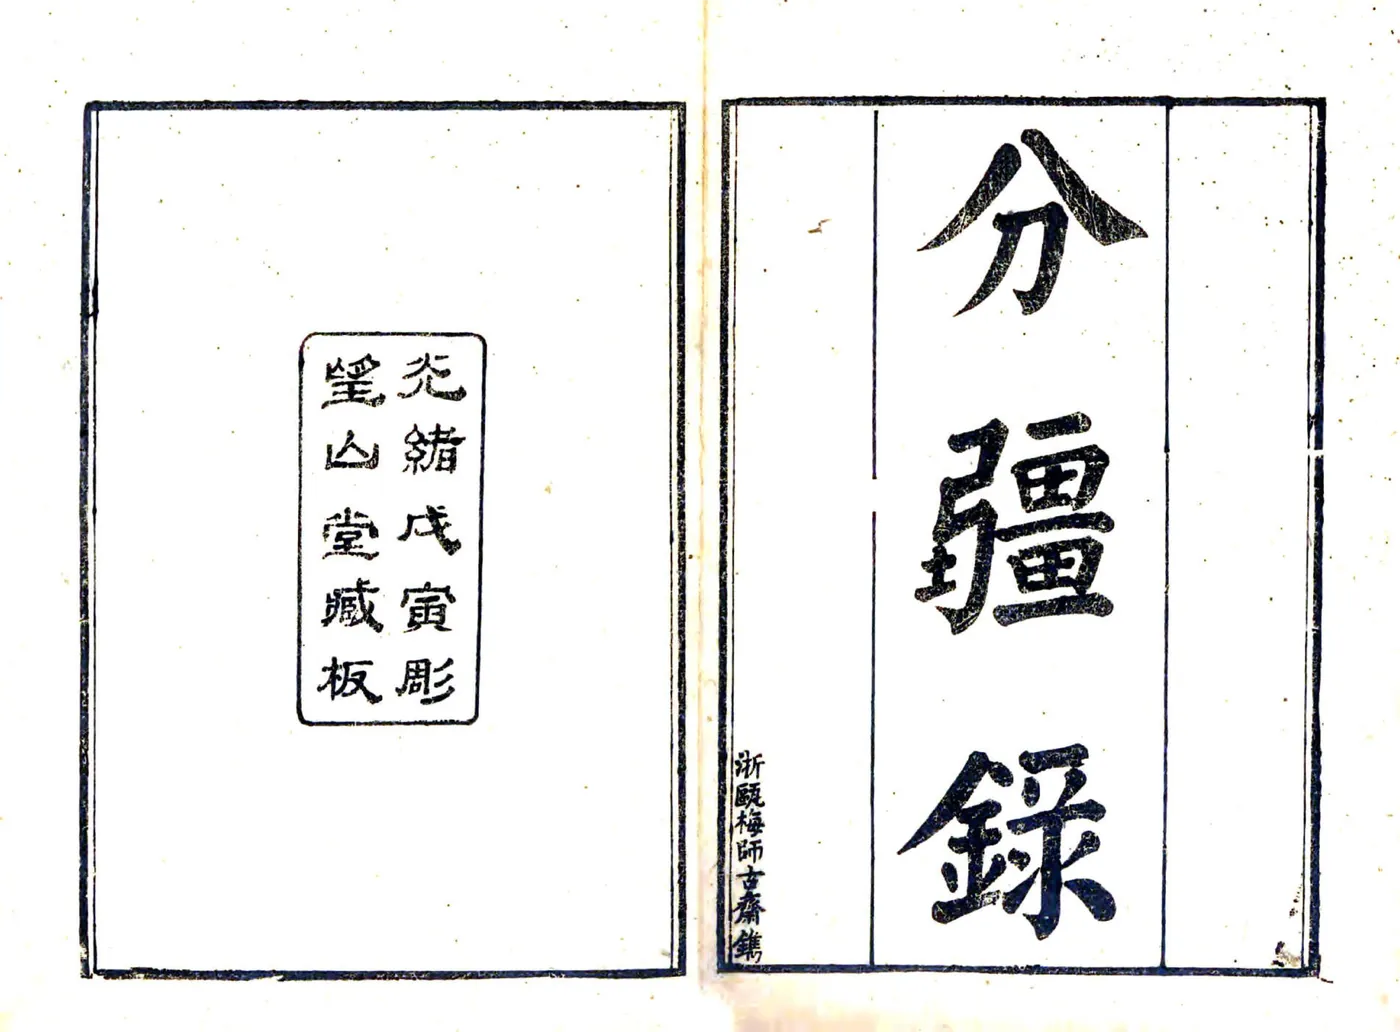 分疆錄
浙甌梅師古齋鐫
光緒戊寅彫
望山堂臧板